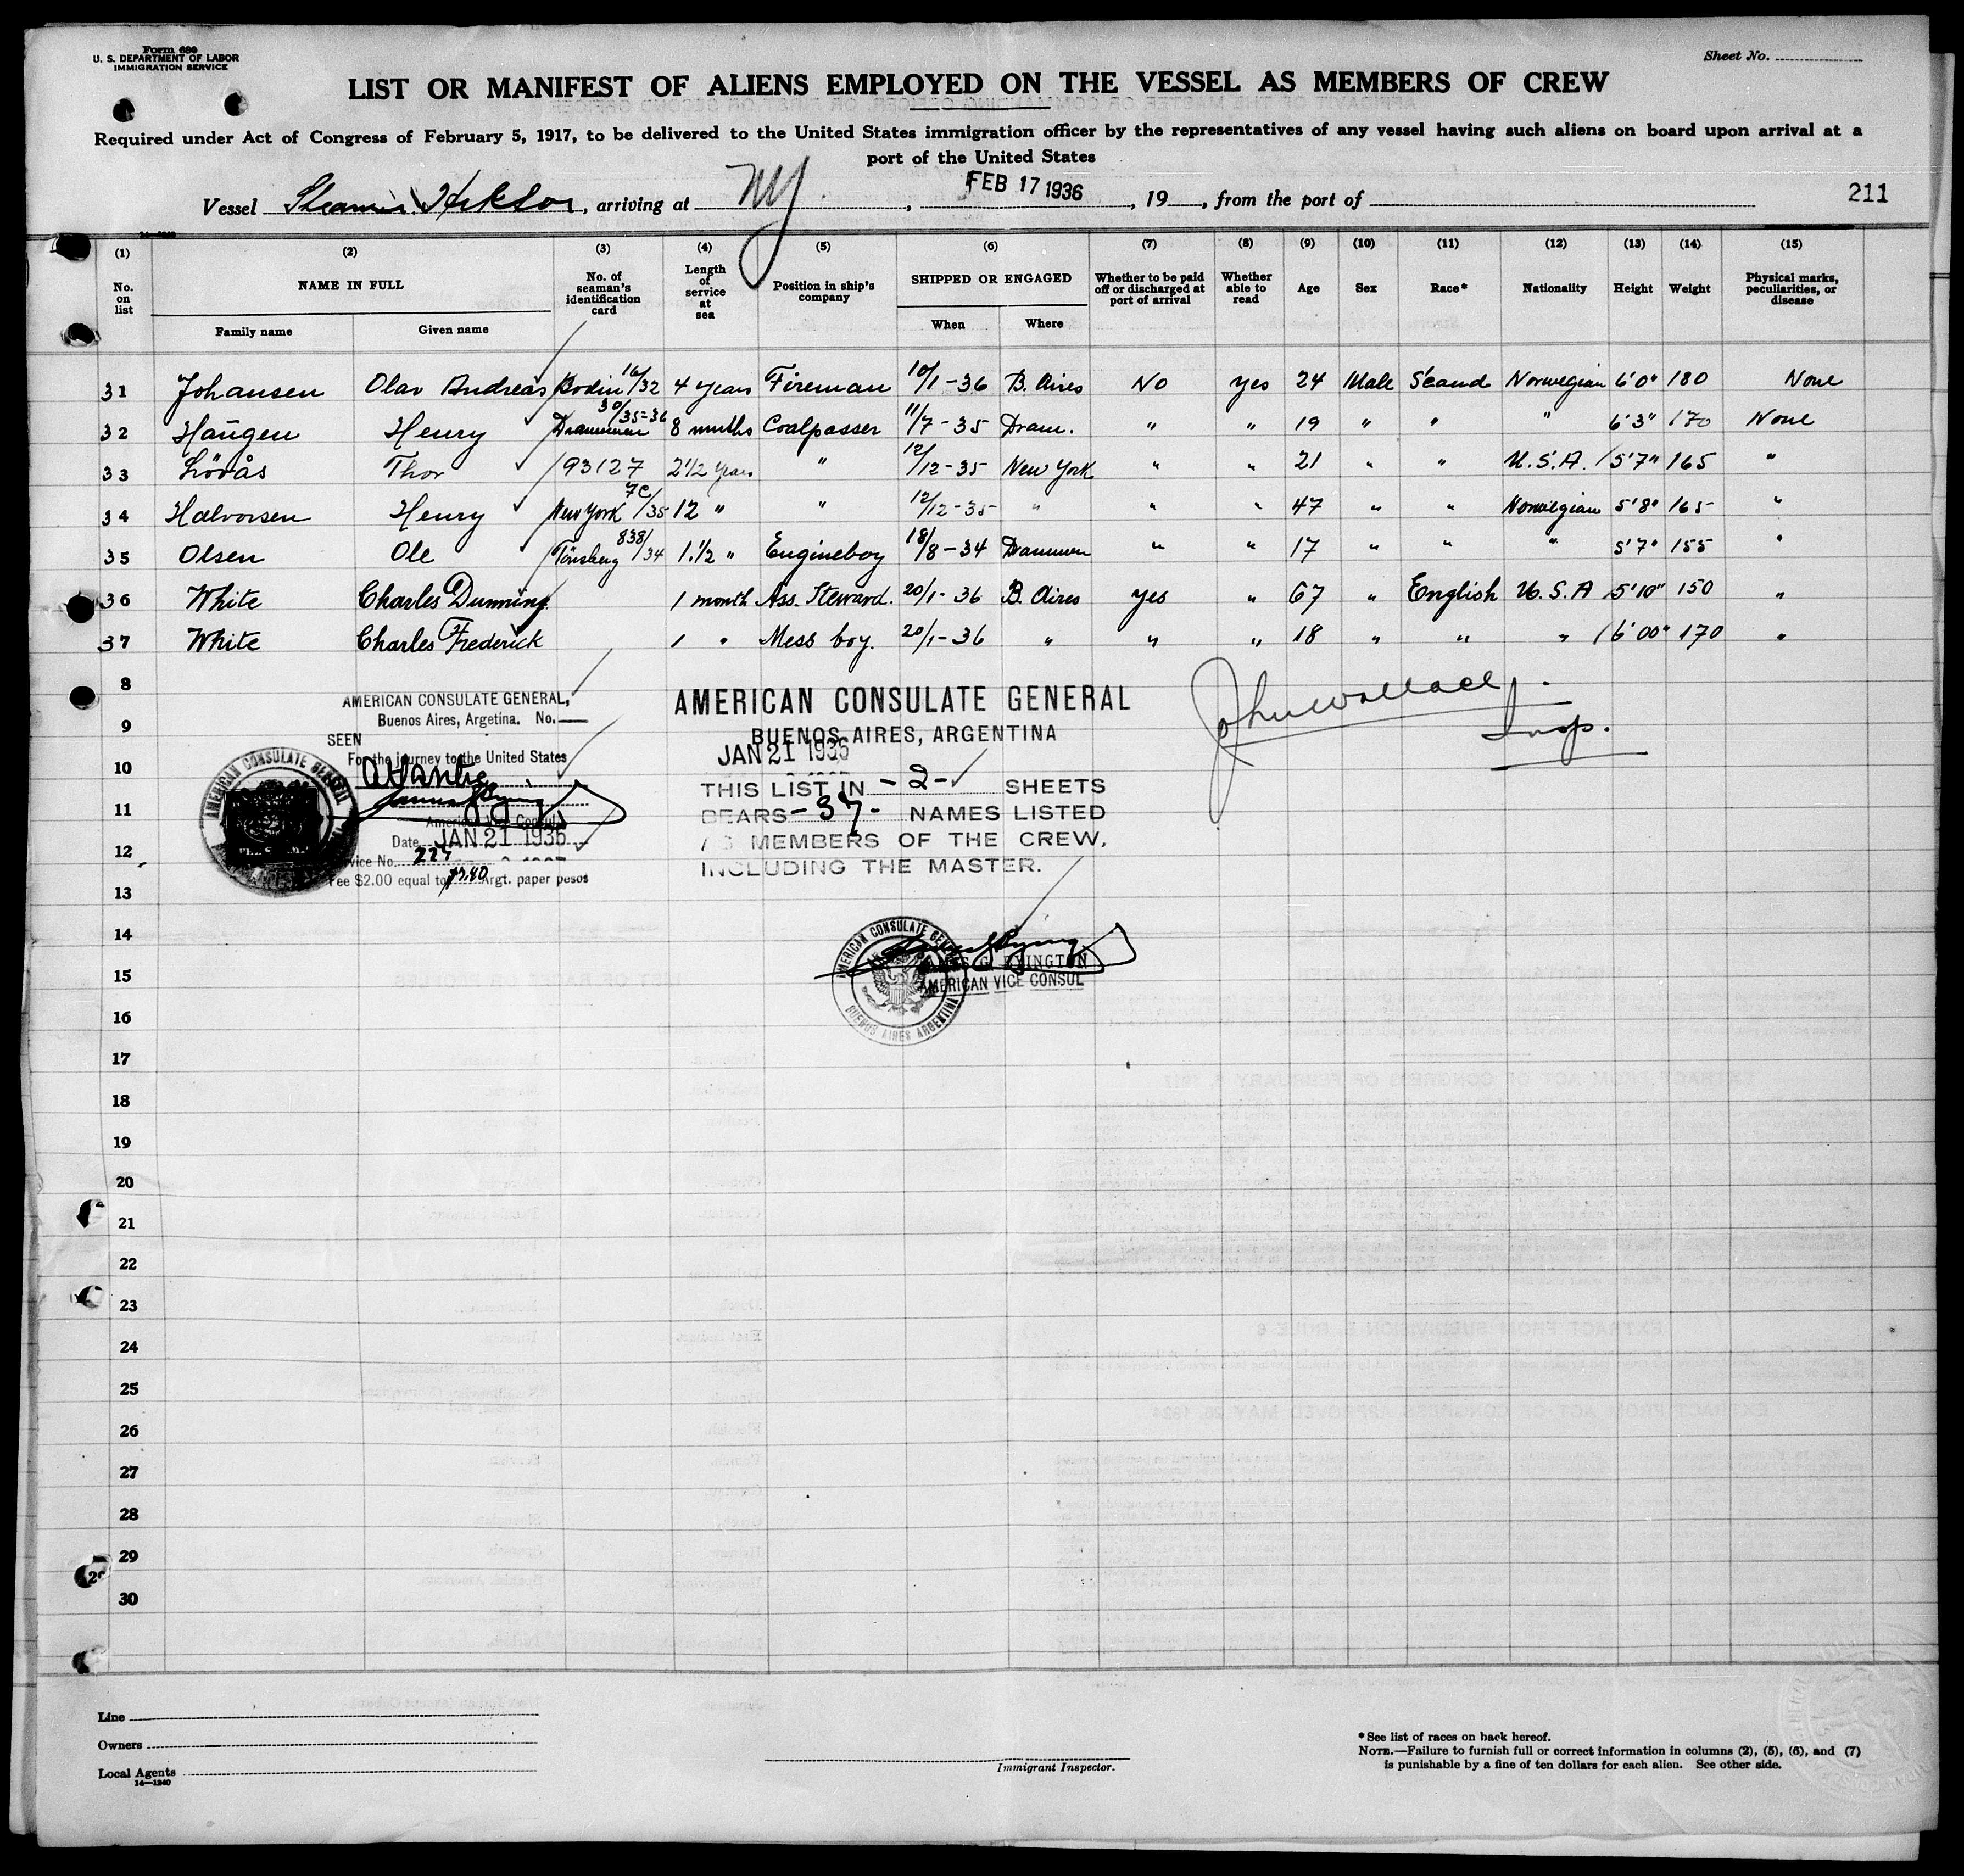 Form 680
U. S. DEPARTMENT OF LABOR
IMMIGRATION SERVICE
Sheet No.
LIST OR MANIFEST OF ALIENS EMPLOYED ON THE VESSEL AS MEMBERS OF CREW
Required under Act of Congress of February 5, 1917, to be delivered to the United States immigration officer by the representatives of any vessel having such aliens on board upon arrival at a
port of the United States
Vessel Steamer, arriving at NY, FEB 17 1936, 19, from the port of
211
(1) (2) (3) (4) (5) (6) (7) (8) (9) (10) (11) (12) (13) (14) (15)
No. on list NAME IN FULL No. of seaman's identification card Length of service at sea Position in ship's company SHIPPED OR ENGAGED Whether to be paid off or discharged at port of arrival Whether able to read Age Sex Race* Nationality Height Weight Physical marks, peculiarities, or disease
Family name Given name When Where
31 Johansen Olav Andreas Bodin 16/32 4 years Fireman 10/1-36 B. Aires No Yes 24 Male Scand Norwegian 6'0" 180 None
32 Haugen Henry Drammen 30/35-36 8 months Coalpasser 11/7-35 Dram. " " 19 " " " 6'3" 170 None
33 Lövås Thor 93127 2 1/2 years " 12/12-35 New York " " 21 " " U.S.A. 5'7" 165 "
34 Halvorsen Henry New York 12 " " 12/12-35 " " " 47 " " Norwegian 5'8" 165 "
35 Olsen Ole Tönsberg 838/34 1.1/2 " Engineboy 18/8-34 Drammen " " 17 " " " 5'7" 155 "
36 White Charles Dunning 1 month Ass. Steward. 20/1-36 B. Aires Yes " 67 " English U.S.A 5'10" 150 "
37 White Charles Frederick 1 " Mess boy. 20/1-36 " " " 18 " " " 6'00" 170 "
8
9
10
11
12
13
14
15
16
17
18
19
20
21
22
23
24
25
26
27
28
29
30
AMERICAN CONSULATE GENERAL,
Buenos Aires, Argetina. No.
SEEN
For the journey to the United States
American Vice Consul
Date JAN 21 1936
Service No. 227
Fee \$2.00 equal to Argt. paper pesos
AMERICAN CONSULATE GENERAL
AMERICAN CONSULATE GENERAL
BUENOS AIRES, ARGENTINA
JAN 21 1936
THIS LIST IN -2- SHEETS
BEARS -37- NAMES LISTED
AS MEMBERS OF THE CREW,
INCLUDING THE MASTER.
John Wallace
Insp.
AMERICAN CONSULATE GENERAL
BUENOS AIRES ARGENTINA
JAMES G. BYINGTON
AMERICAN VICE CONSUL
Line
Owners
Local Agents
14—1240
Immigrant Inspector.
*See list of races on back hereof.
NOTE.—Failure to furnish full or correct information in columns (2), (5), (6), and (7)
is punishable by a fine of ten dollars for each alien. See other side.